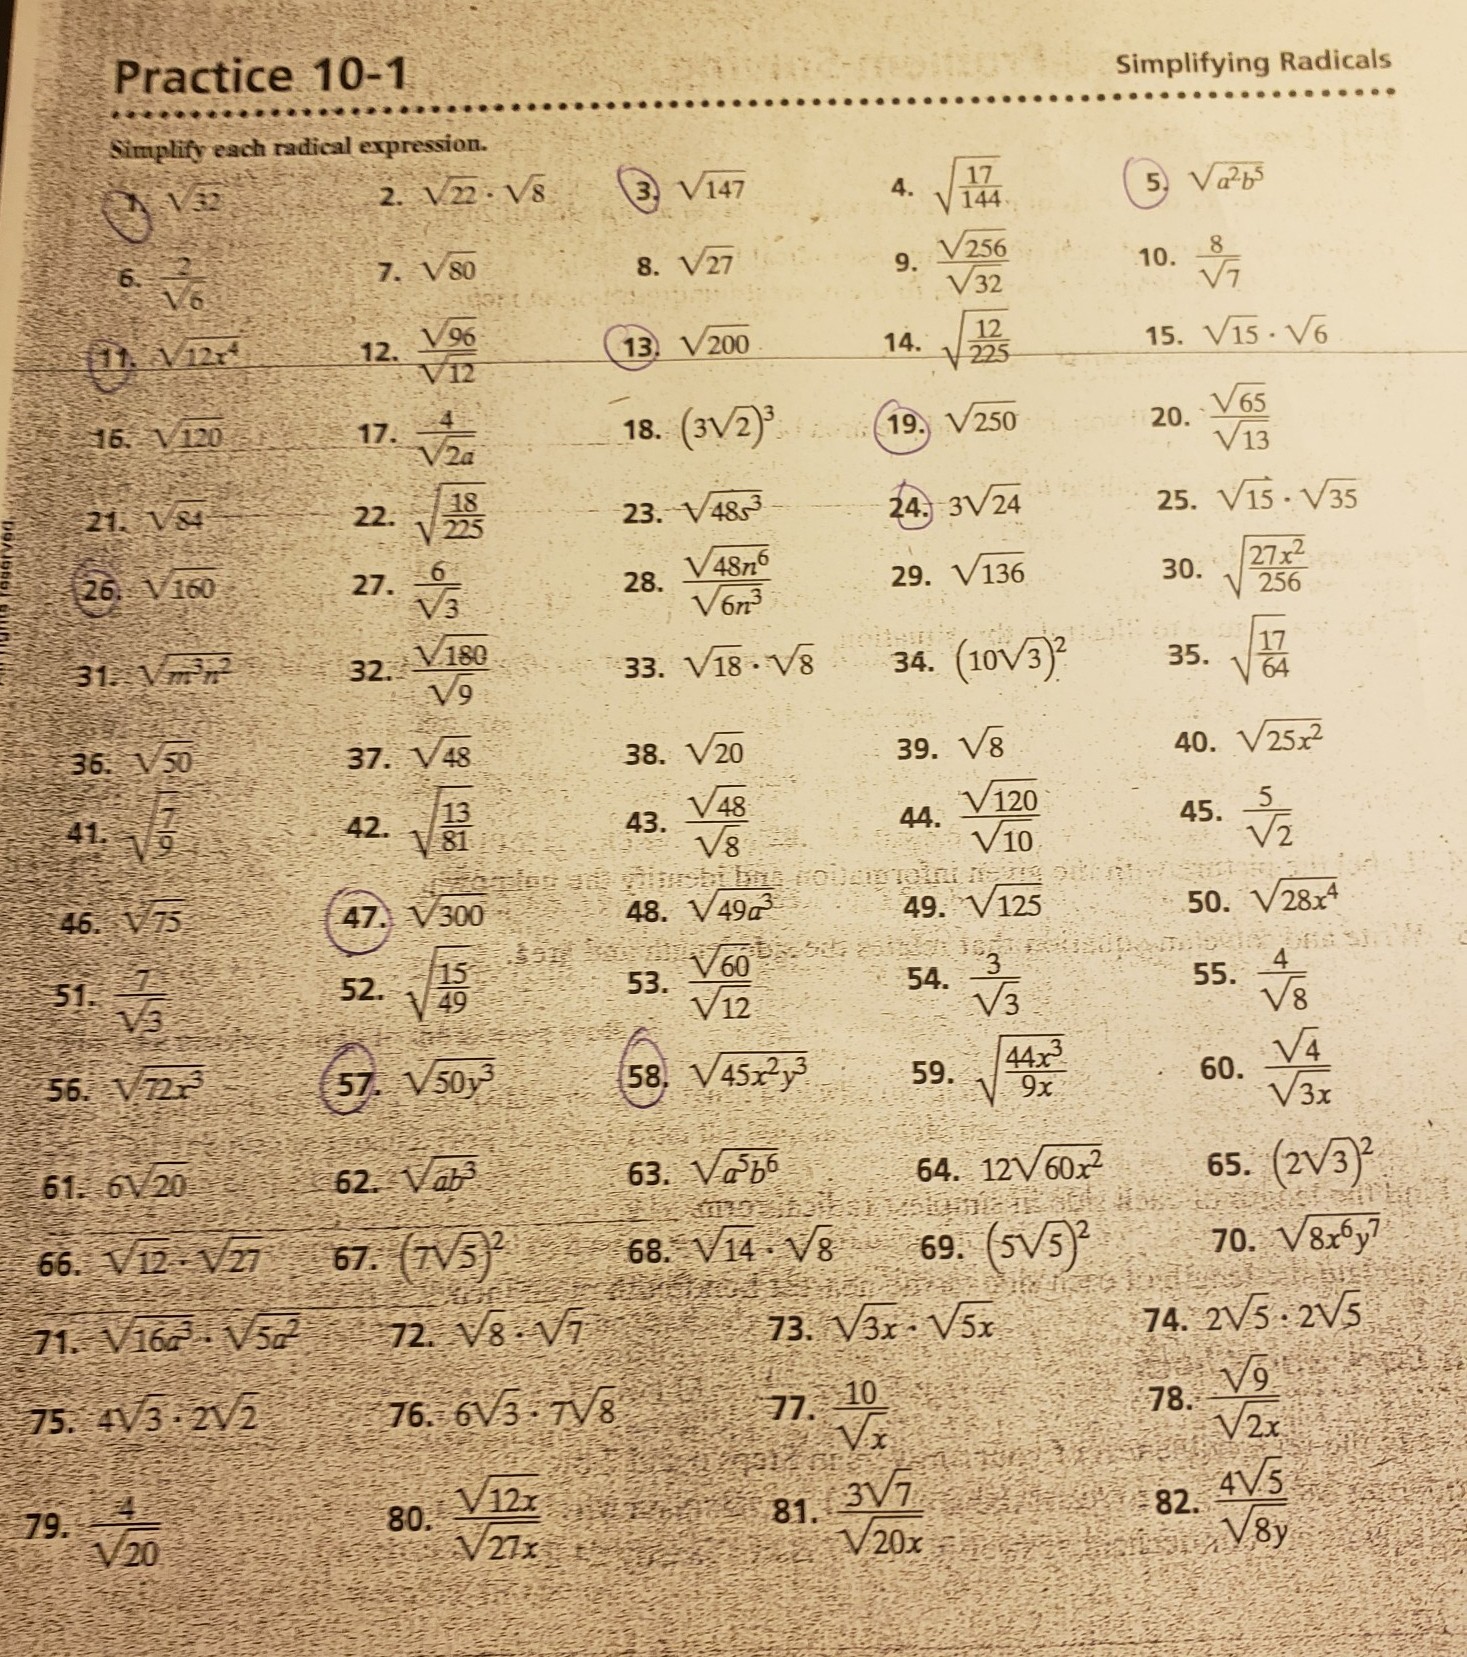 Practice 10-1
Simplifying Radicals
Simplify each radical expression.
1. √32 2. √22 · √8 3. √147 4. √(17/144) 5. √(a²b⁵)
6. 2/√6 7. √80 8. √27 9. √256/√32 10. 8/√7
11. √(12x⁴) 12. √96/√12 13. √200 14. √(12/225) 15. √15 · √6
16. √120 17. 4/√(2a) 18. (3√2)³ 19. √250 20. √65/√13
21. √84 22. √(18/225) 23. √(48s³) 24. 3√24 25. √15 · √35
26. √160 27. 6/√3 28. √(48n⁶)/√(6n³) 29. √136 30. √(27x²/256)
31. √(m³n²) 32. √180/√9 33. √18 · √8 34. (10√3)² 35. √(17/64)
36. √50 37. √48 38. √20 39. √8 40. √(25x²)
41. √(7/9) 42. √(13/81) 43. √48/√8 44. √120/√10 45. 5/√2
46. √75 47. √300 48. √(49a³) 49. √125 50. √(28x⁴)
51. 7/√3 52. √(15/49) 53. √60/√12 54. 3/√3 55. 4/√8
56. √(72x³) 57. √(50y³) 58. √(45x²y³) 59. √(44x³/9x) 60. √4/√(3x)
61. 6√20 62. √(ab³) 63. √(a⁵b⁶) 64. 12√(60x²) 65. (2√3)²
66. √12 · √27 67. (7√5)² 68. √14 · √8 69. (5√5)² 70. √(8x⁶y⁷)
71. √(16a³) · √(5a²) 72. √8 · √7 73. √(3x) · √(5x) 74. 2√5 · 2√5
75. 4√3 · 2√2 76. 6√3 · 7√8 77. 10/√x 78. √9/√(2x)
79. 4/√20 80. √(12x)/√(27x) 81. 3√7/√(20x) 82. 4√5/√(8y)